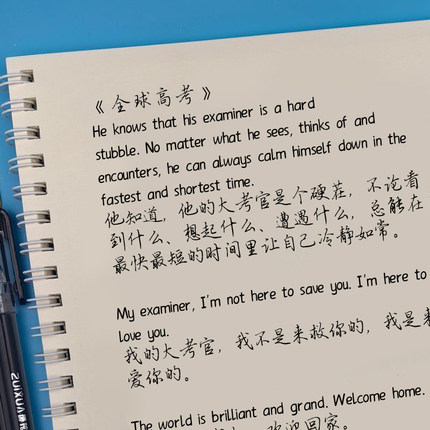 《全球高考》
He knows that his examiner is a hard
stubble. No matter what he sees, thinks of and
encounters, he can always calm himself down in the
fastest and shortest time.
他知道，他的大考官是个硬茬，不论看
到什么、想起什么、遭遇什么，总能在
最快最短的时间里让自己冷静如常。
My examiner, I'm not here to save you. I'm here to
love you.
我的大考官，我不是来救你的，我是来
爱你的。
The world is brilliant and grand. Welcome home.
欢迎回家。